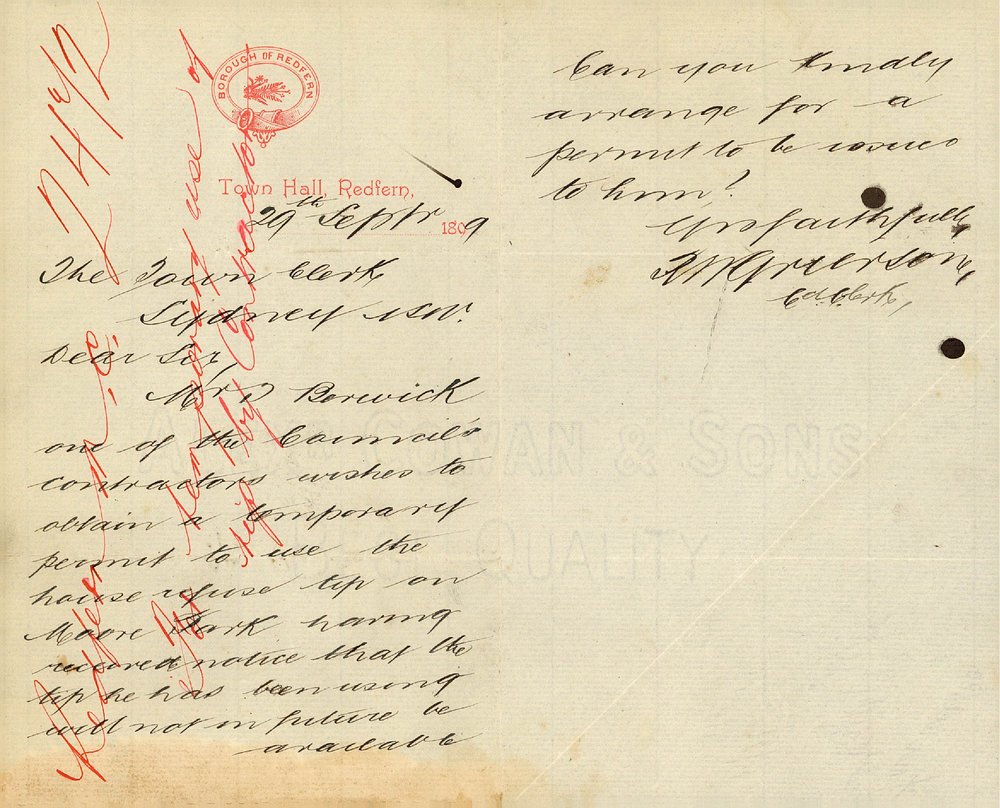 BOROUGH OF REDFERN
Town Hall, Redfern,
29th Septr 1809
The Town Clerk
Sydney NSW.
Dear Sir,
Mr Berwick
one of the Council's
contractors wishes to
obtain a temporary
permit to use the
house refuse tip on
Moore Park having
received notice that the
tip he has been using
will not in future be
available
Can you kindly
arrange for a
permit to be issued
to him?
Yrs faithfully,
Grierson,
Cl. Clerk,
Redfern M.C.
temporary use of
tip by Contractor
ALEXR COWAN & SONS
QUALITY